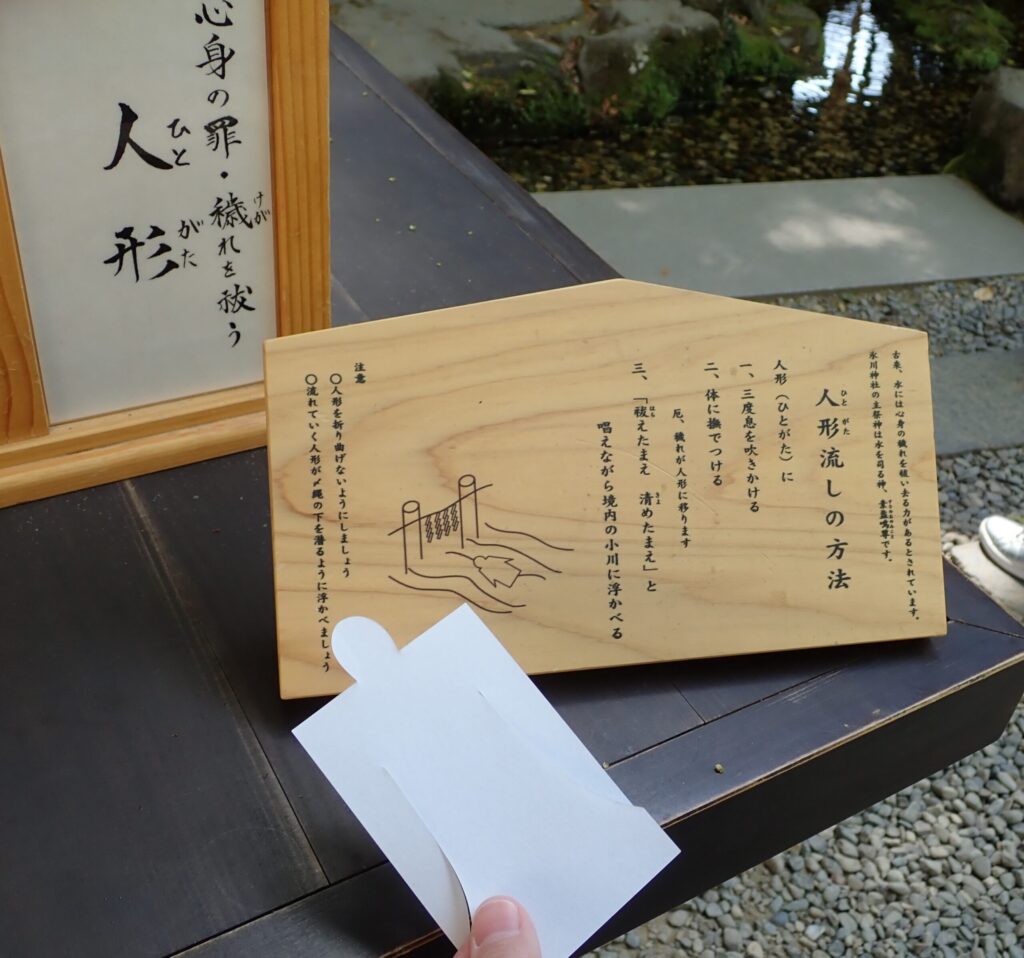 心身の罪・穢れを祓う
けが
人形
ひとがた
古来、水には心身の穢れを祓い去る力があるとされています。
氷川神社の主祭神は水を司る神、素盞嗚尊です。
すさのおのみこと
人形流しの方法
ひとがた
人形(ひとがた)に
一、三度息を吹きかける
二、体に撫でつける
厄、穢れが人形に移ります
三、「祓えたまえ 清めたまえ」と
はら きよ
唱えながら境内の小川に浮かべる
注意
〇人形を折り曲げないようにしましょう
〇流れていく人形が〆縄の下を潜るように浮かべましょう